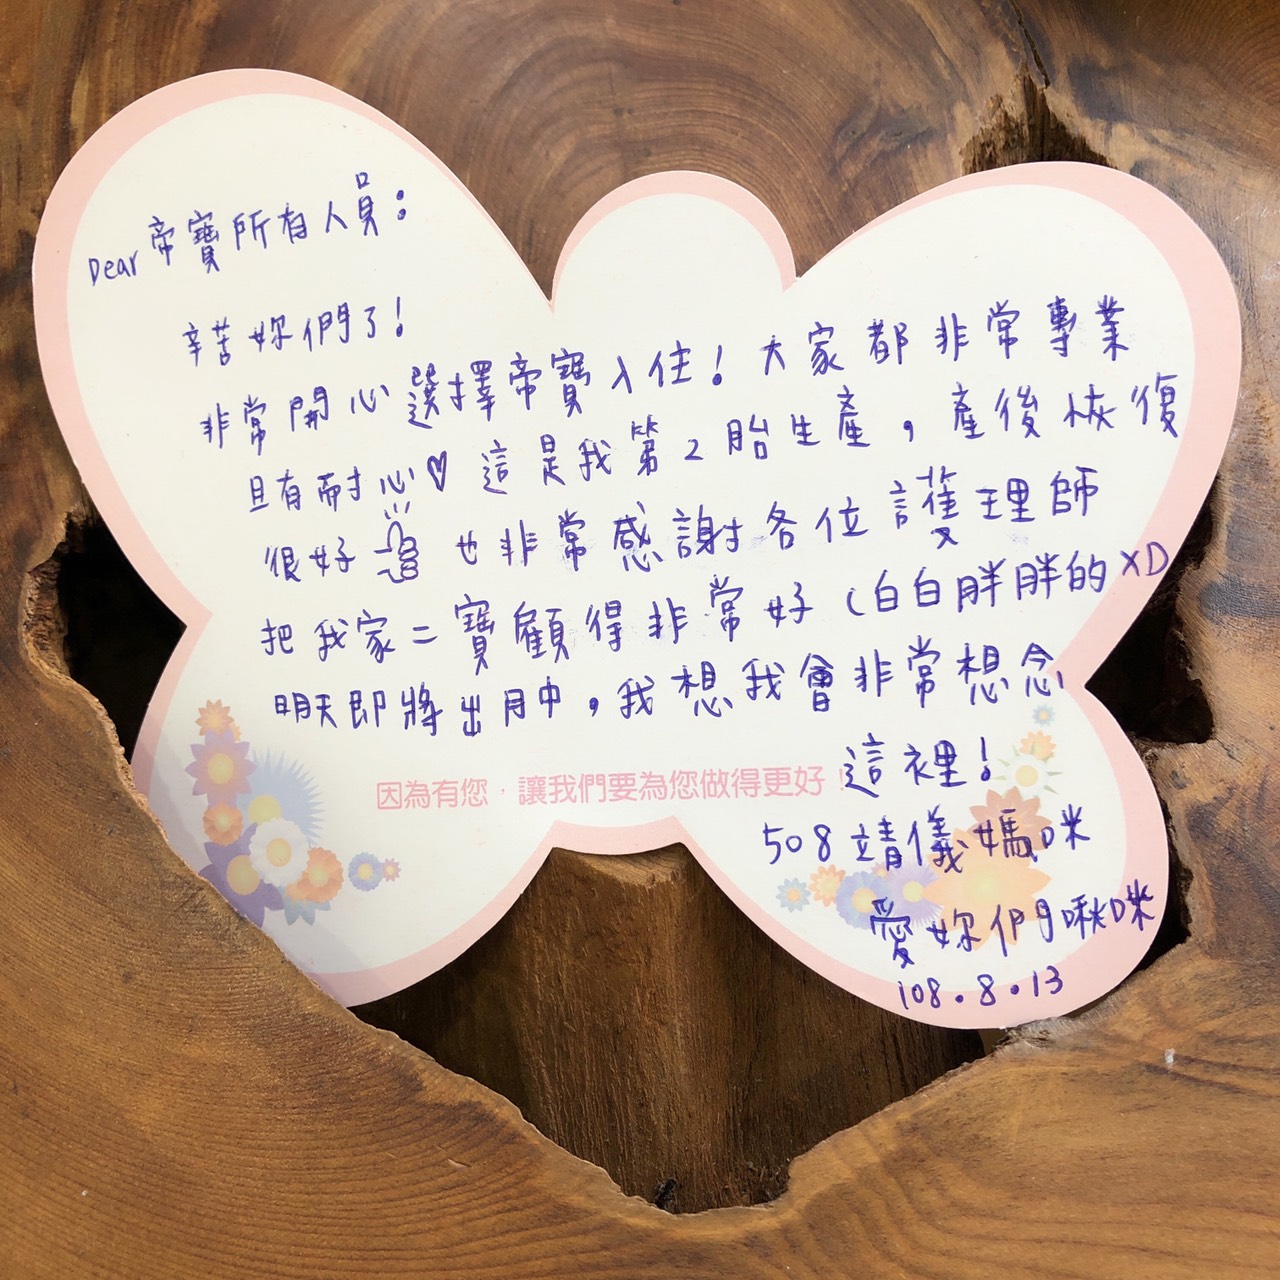 Dear 帝寶所有人員：
辛苦妳們了！
非常開心選擇帝寶入住！大家都非常專業
且有耐心♡ 這是我第2胎生產，產後恢復
很好 也非常感謝各位護理師
把我家二寶顧得非常好（白白胖胖的XD
明天即將出月中，我想我會非常想念
這裡！
因為有您，讓我們要為您做得更好！
508 靖儀媽咪
愛妳們啾咪
108.8.13